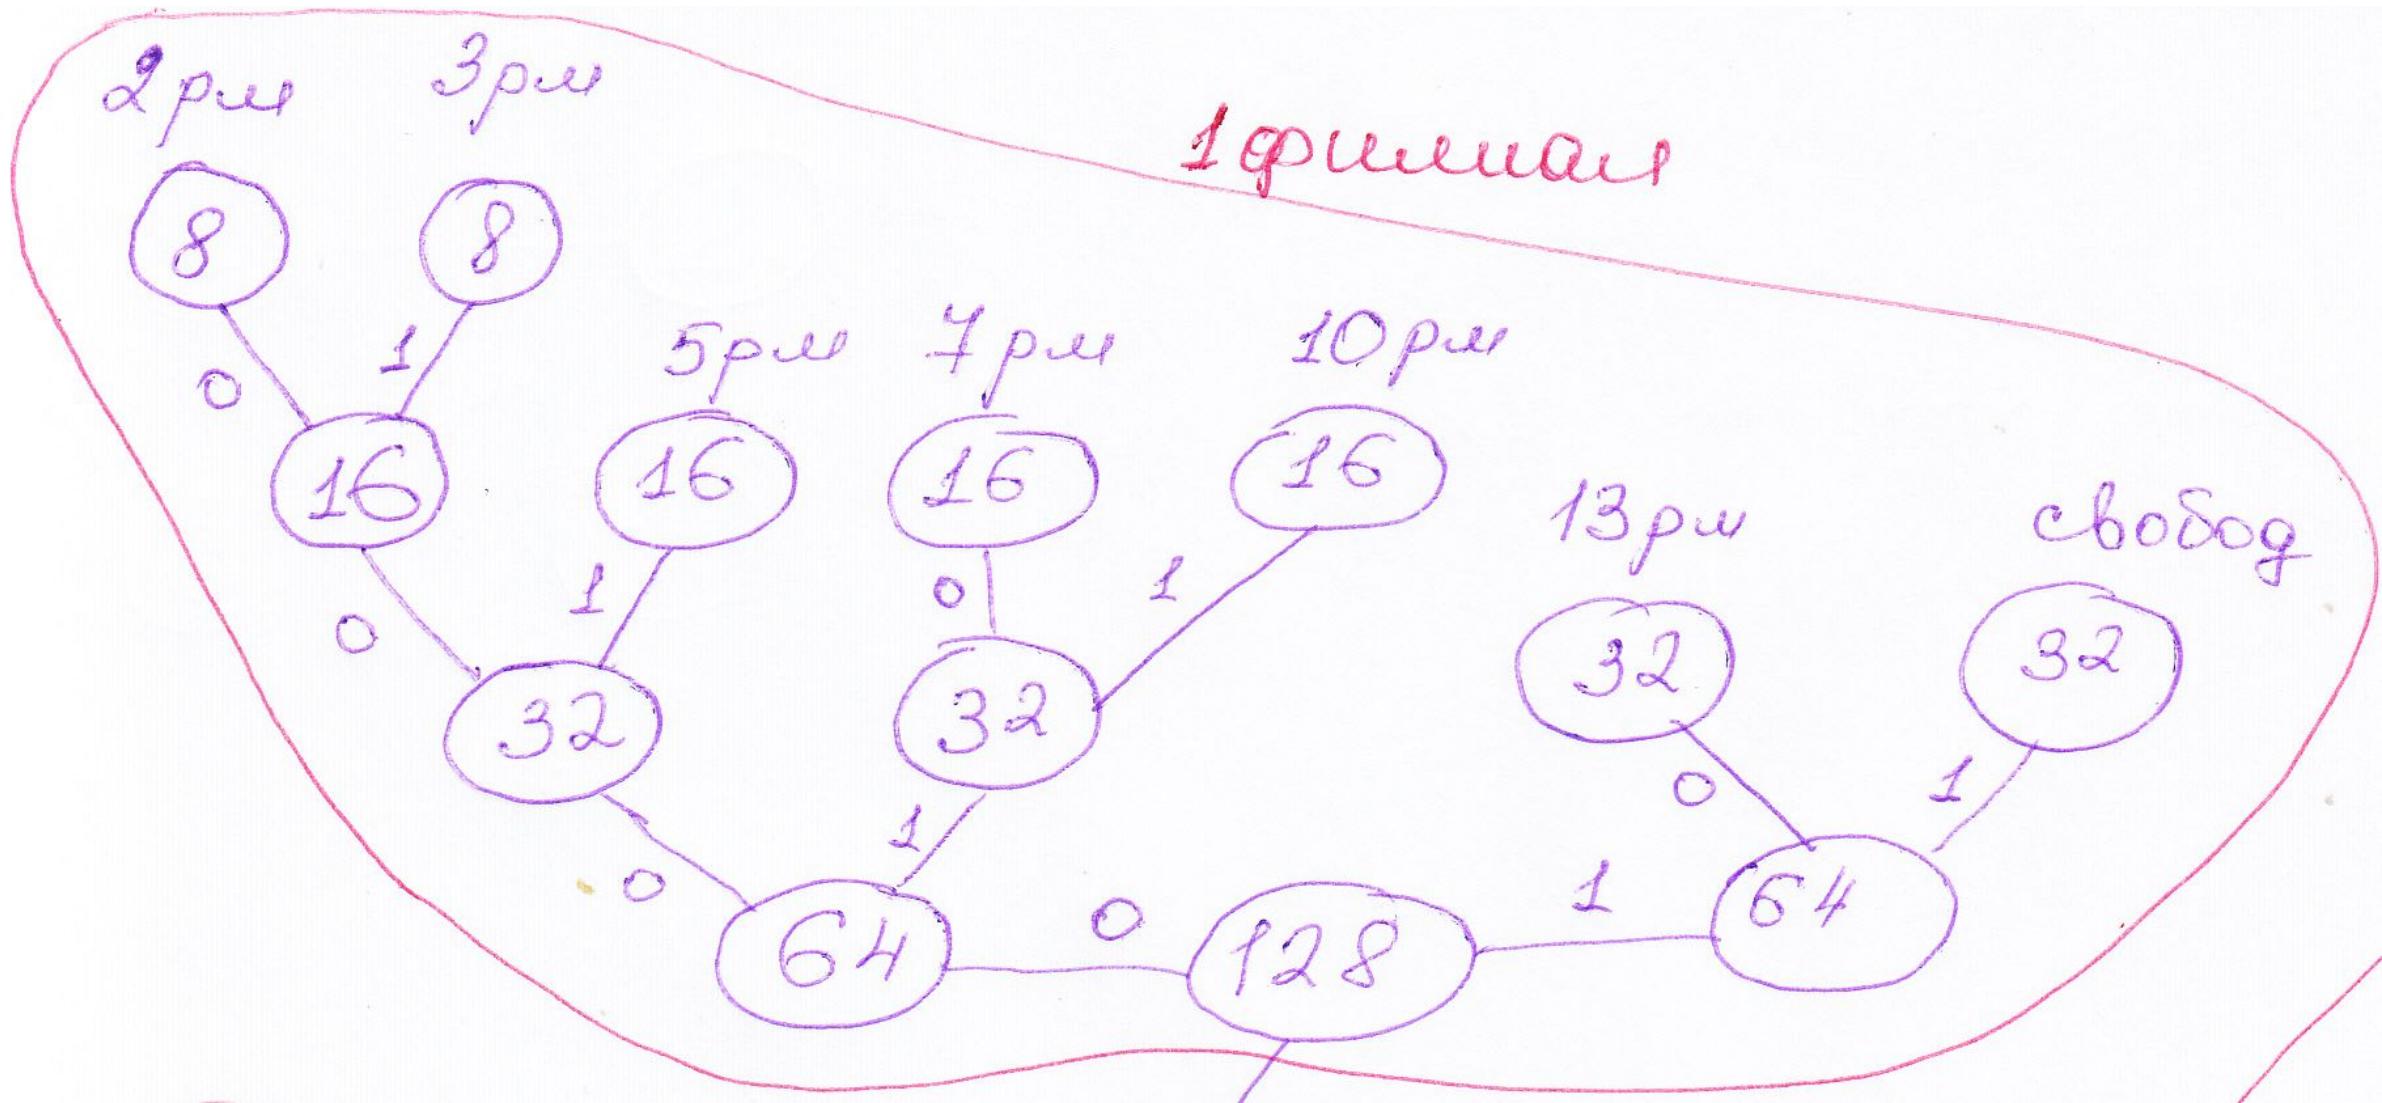 2рм 3рм
1 филиал
8 8
0 1
5рм 7рм 10рм
16 16 16 16
13рм свобод
0 1 0 1
32 32 32 32
0 1 0 1
64 0 128 1 64